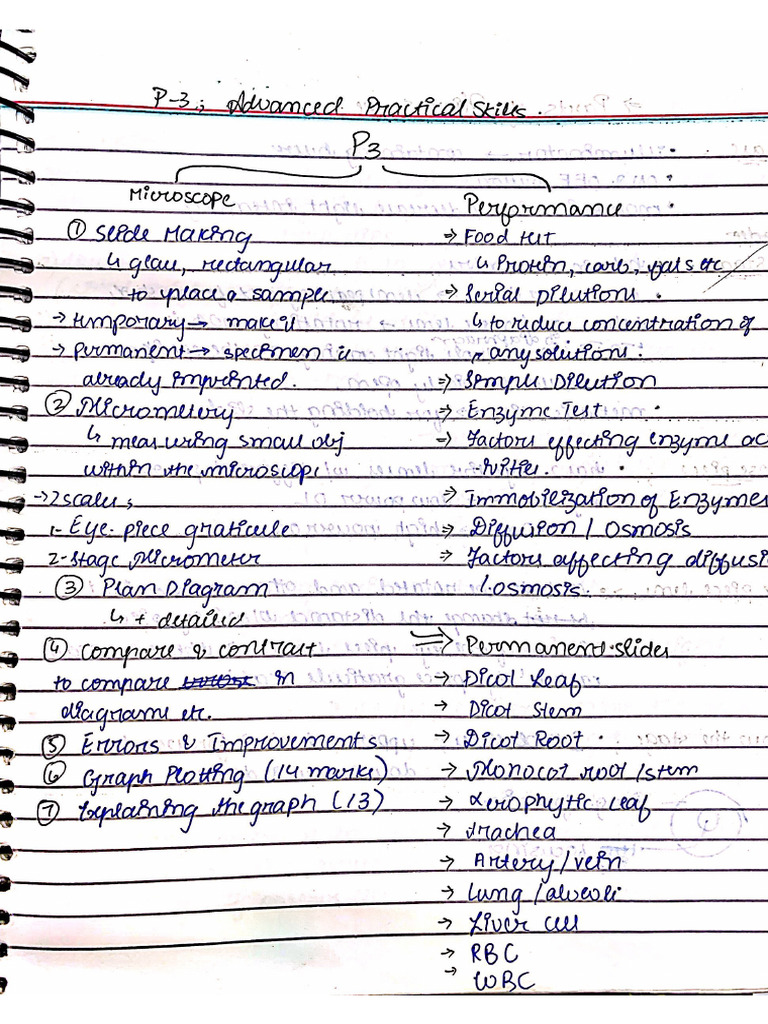 P-3; Advanced Practical Skills.
P3
Microscope
① Slide Making
↳ glass, rectangular
to place a sample
→ temporary → make it
→ permanent → specimen is
already imprinted.
② Micrometery
↳ measuring small obj
within the microscope
→ 2 scales;
1- Eye-piece graticule
2- Stage Micrometer
③ Plan Diagram
↳ + detailed
④ Compare & contrast
to compare in
diagrams etc.
⑤ Errors & Improvements
⑥ Graph Plotting (14 marks)
⑦ Explaining the graph (13)
Performance
→ Food test
↳ Protein, carb, fats etc
→ Serial Dilutions
↳ to reduce concentration of
any solutions.
→ Simple Dilution
→ Enzyme Test
→ Factors effecting enzyme ac
-tivities.
→ Immobilization of Enzymes
→ Diffusion / Osmosis
→ Factors affecting diffusi
/ Osmosis.
⇒ Permanent slides
→ Dicot Leaf
→ Dicot Stem
→ Dicot Root
→ Monocot root / stem
→ Xerophytic leaf
→ trachea
→ Artery / vein
→ Lung / alveoli
→ Liver cell
→ RBC
→ WBC